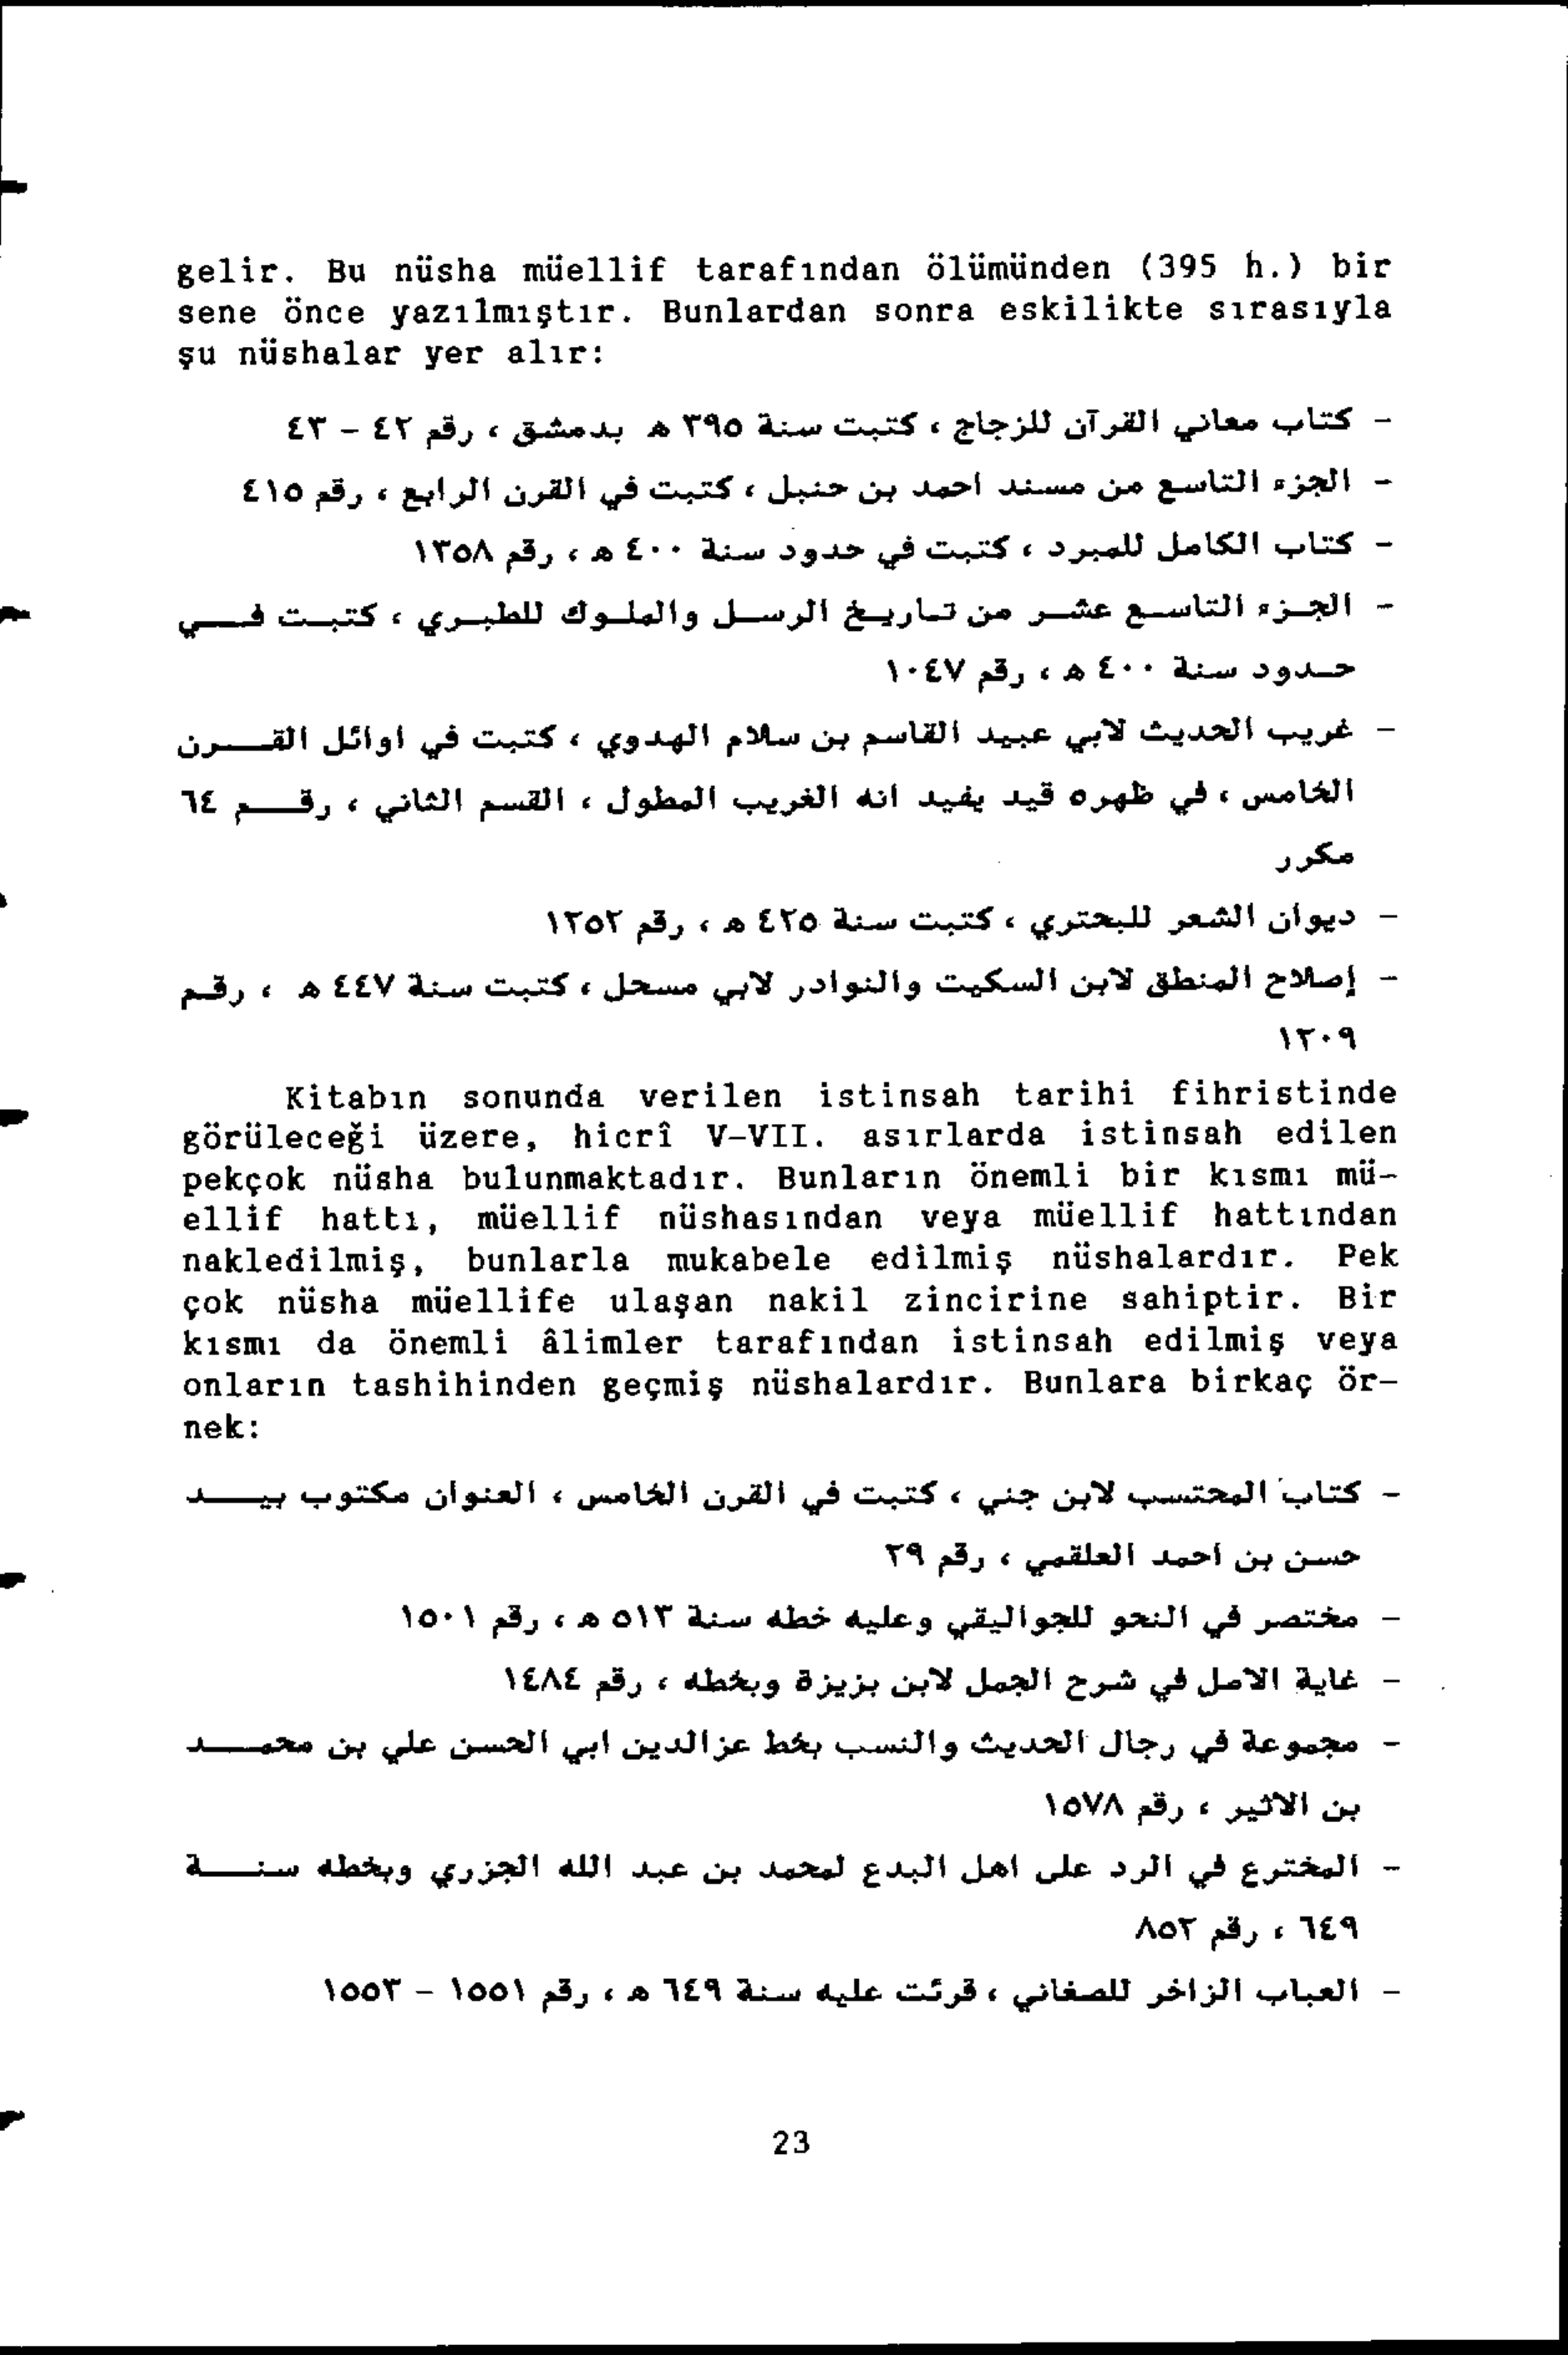 gelir. Bu nüsha müellif tarafından ölümünden (395 h.) bir
sene önce yazılmıştır. Bunlardan sonra eskilikte sırasıyla
şu nüshalar yer alır:
- كتاب معاني القرآن للزجاج ، كتبت سنة ٣٩٥ ه بدمشق ، رقم ٤٢ - ٤٣
- الجزء التاسع من مسند احمد بن حنبل ، كتبت في القرن الرابع ، رقم ٤١٥
- كتاب الكامل للمبرد ، كتبت في حدود سنة ٤٠٠ ه ، رقم ١٣٥٨
- الجزء التاسع عشر من تاريخ الرسل والملوك للطبري ، كتبت في
حدود سنة ٤٠٠ ه ، رقم ١٠٤٧
- غريب الحديث لابي عبيد القاسم بن سلام الهدوي ، كتبت في اوائل القرن
الخامس ، في ظهره قيد يفيد انه الغريب المطول ، القسم الثاني ، رقم ٦٤
مكرر
- ديوان الشعر للبحتري ، كتبت سنة ٤٢٥ ه ، رقم ١٢٥٢
- إصلاح المنطق لابن السكيت والنوادر لابي مسحل ، كتبت سنة ٤٤٧ ه ، رقم
١٢٠٩
Kitabın sonunda verilen istinsah tarihi fihristinde
görüleceği üzere, hicrî V-VII. asırlarda istinsah edilen
pekçok nüsha bulunmaktadır. Bunların önemli bir kısmı mü-
ellif hattı, müellif nüshasından veya müellif hattından
nakledilmiş, bunlarla mukabele edilmiş nüshalardır. Pek
çok nüsha müellife ulaşan nakil zincirine sahiptir. Bir
kısmı da önemli âlimler tarafından istinsah edilmiş veya
onların tashihinden geçmiş nüshalardır. Bunlara birkaç ör-
nek:
- كتاب المحتسب لابن جني ، كتبت في القرن الخامس ، العنوان مكتوب بيد
حسن بن احمد العلقمي ، رقم ٢٩
- مختصر في النحو للجواليقي وعليه خطه سنة ٥١٣ ه ، رقم ١٥٠١
- غاية الامل في شرح الجمل لابن بزيزة وبخطه ، رقم ١٤٨٤
- مجموعة في رجال الحديث والنسب بخط عزالدين ابي الحسن علي بن محمد
بن الاثير ، رقم ١٥٧٨
- المخترع في الرد على اهل البدع لمحمد بن عبد الله الجزري وبخطه سنة
٦٤٩ ، رقم ٨٥٢
- العباب الزاخر للصغاني ، قرئت عليه سنة ٦٤٩ ه ، رقم ١٥٥١ - ١٥٥٣
23